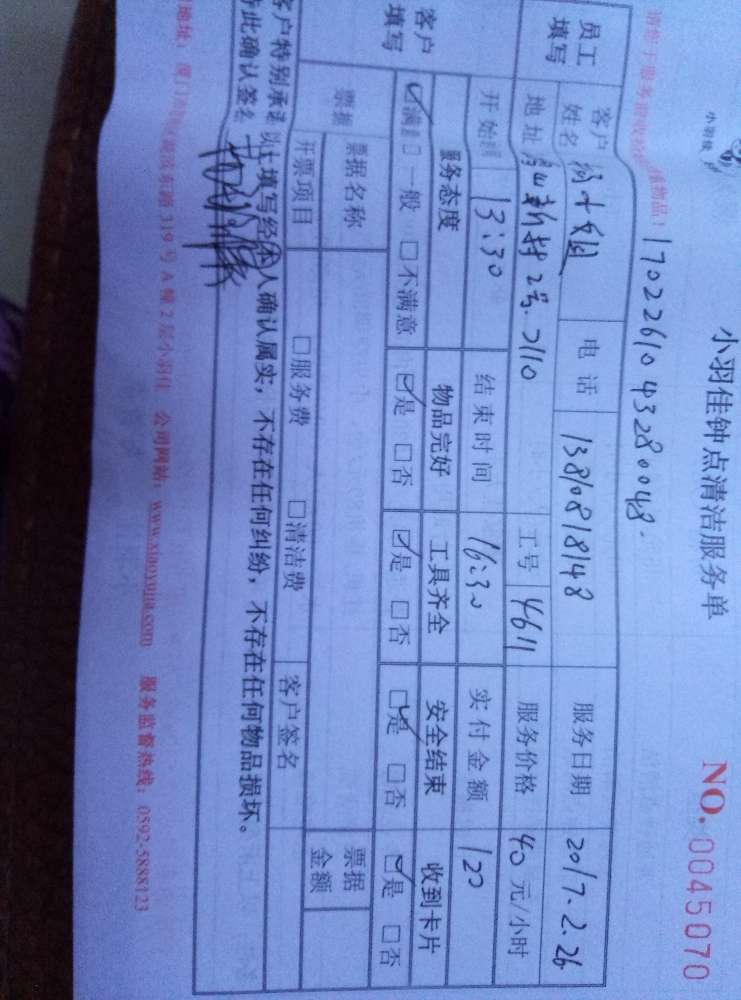 小羽佳
小羽佳钟点清洁服务单
NO. 0045070
1702261043280048.
员工填写
客户姓名 电话 13810818148 服务日期 2017.2.26
地址 新村2号.2110 工号 4611 服务价格 40 元/小时
开始时间 13:30 结束时间 16:30 实付金额 120
客户填写
服务态度 物品完好 工具齐全 安全结束 收到卡片
☑满意 □一般 □不满意 ☑是 □否 ☑是 □否 ☑是 □否 ☑是 □否
票据 票据名称 票据金额
开票项目 □服务费 □清洁费 客户签名
客户特别承诺 以上填写经本人确认属实，不存在任何纠纷，不存在任何物品损坏。
特此确认签名
地址：厦门 东路 319 号 A 幢 2 层小羽佳 公司网站：www.xiaoyujia.com 服务监督热线：0592-5888123